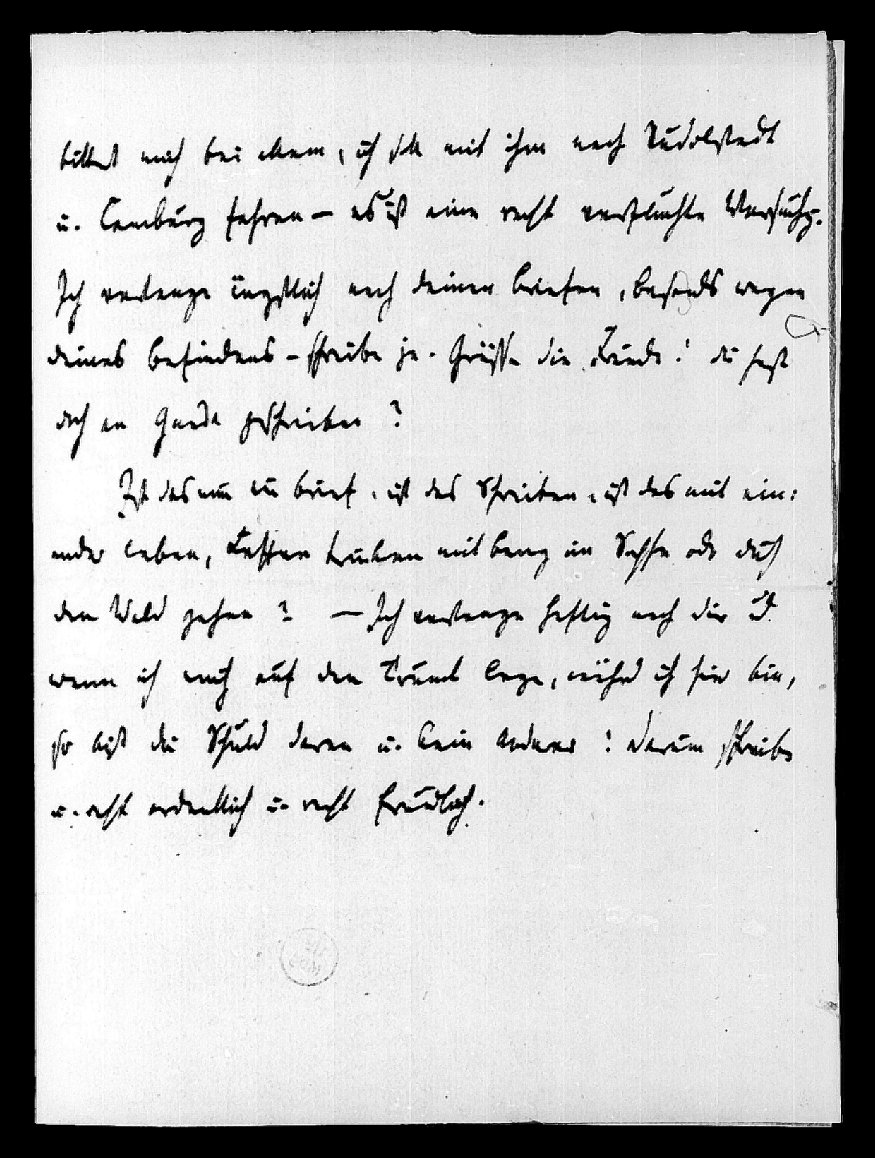 bittet mich bei allem, ich soll mit ihm nach Rudolstadt
u. Camburg fahren – es ist eine recht verfluchte Versuchg.
Ich verlange ängstlich nach deinen Briefen, besonds wegen
deines Befindens – schreibe ja. Grüsse die Freunde! du hast
doch an geschrieben?
Ist das nun ein Brief, ist das Schreiben, ist das mit ein:
ander leben, Kaffee trinken mit im oder durch
den Wald gehen? — Ich verlange heftig nach dir u.
wenn ich mich auf den Trunk lege, währd ich hier bin,
so bist du Schuld daran u. kein Anderer! darum schreibe
u. recht ordentlich u. recht freundlich.